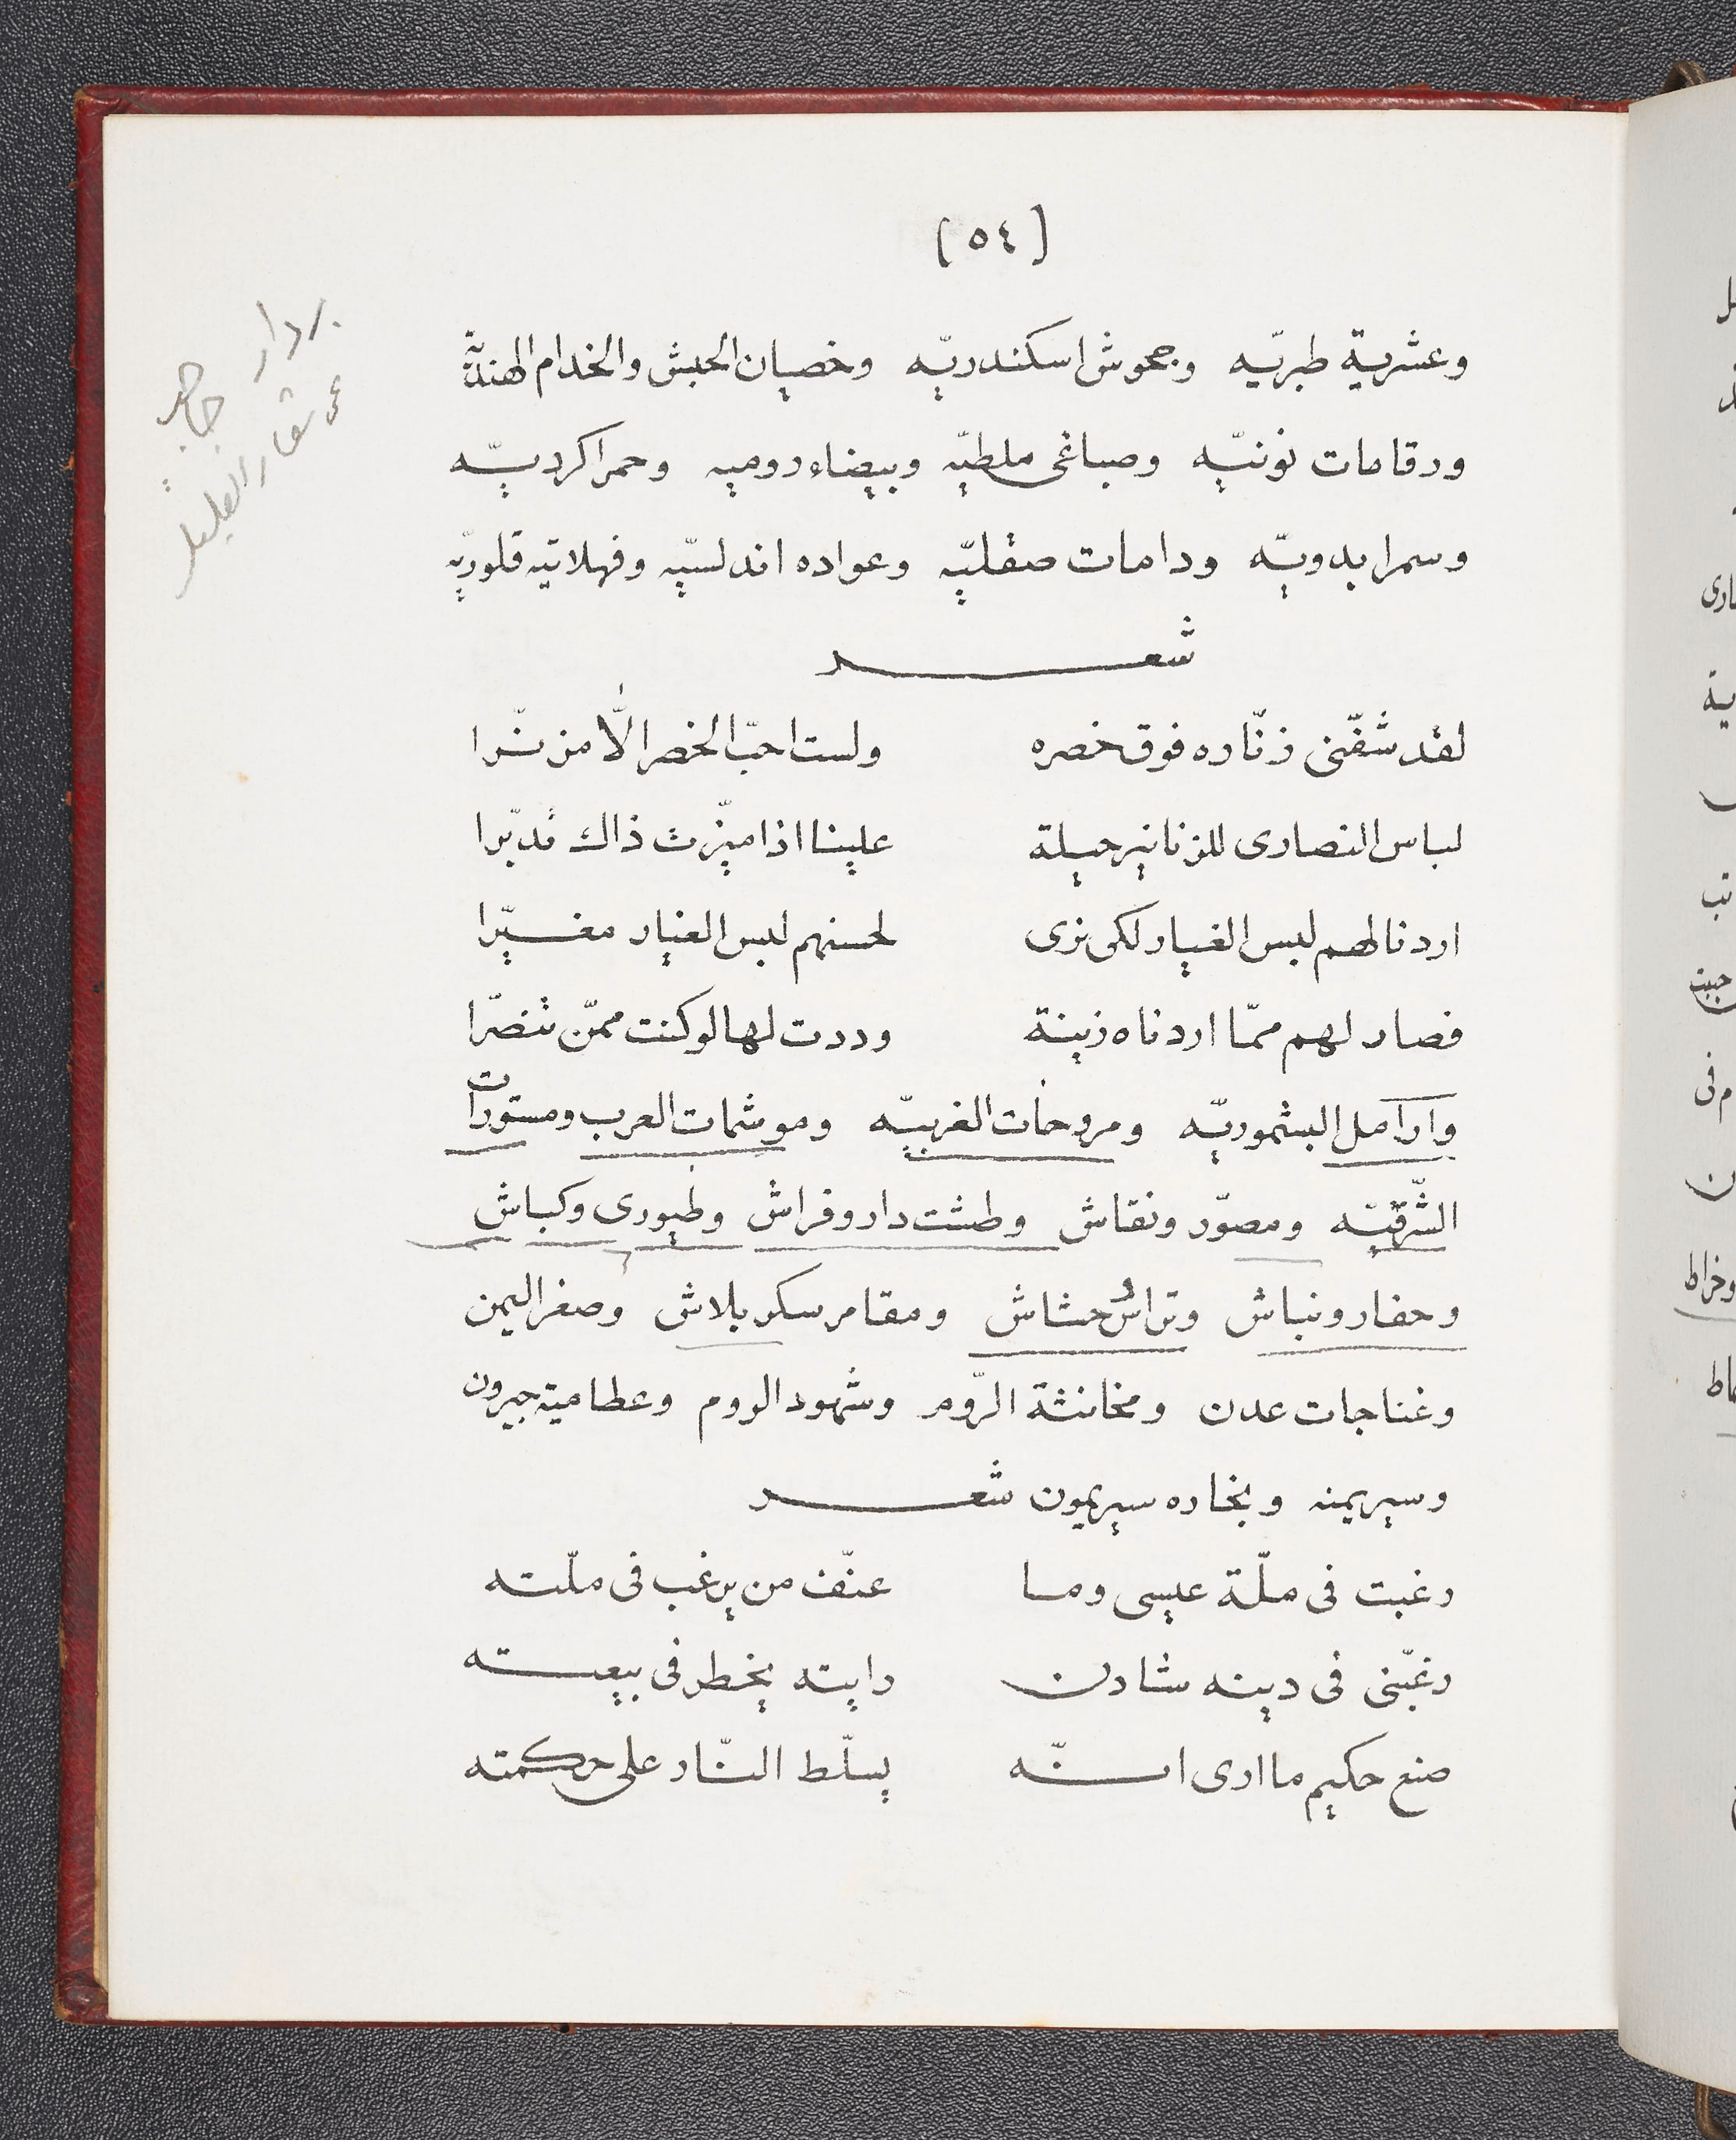 [٥٤]
وعشرية طبريّه وجحوش اسكندريّه وخصيان الحبش والخدام الهنديّه
ورقامات نوننيّه وصباغى ملطيّه وبيضاء روميه وحمرا كرديّه
وسمرا بدويّه ودامات صقليّه وعواده اندلسيّه وفهلاتيه قلوريّه
شعر
لقد شفّنى زنّاره فوق خصره ولست احبّ الخصر الّا مزنّرا
لباس النصارى للزنانير حيلة علينا اذا ميّزت ذاك تدبّرا
اردنا لهم لبس الغيار لكى نرى لحسنهم لبس الغيار مغيّرا
فصار لهم ممّا اردناه زينة وددت لها لو كنت ممّن تنصّرا
وارامل البشموريّه ومروحات الغربيّه وموشمات العرب ومستورات
الشّرقيّه ومصوّر ونقاش وطشت دار وفراش وطيورى وكباش
وحفار ونباش وتراس حشاش ومقامر سكر بلاش وصغر اليمن
وغناجات عدن ومخانثة الرّوم وشهود الروم وعطامية جيرون
وسيريمنه وبخاره سيريمون شعر
رغبت فى ملّة عيسى وما عنّف من يرغب فى ملّته
رغبّنى فى دينه شادن رايته يخطر فى بيعته
صنع حكيم ما ارى انّه يسلّط النّار على حكمته